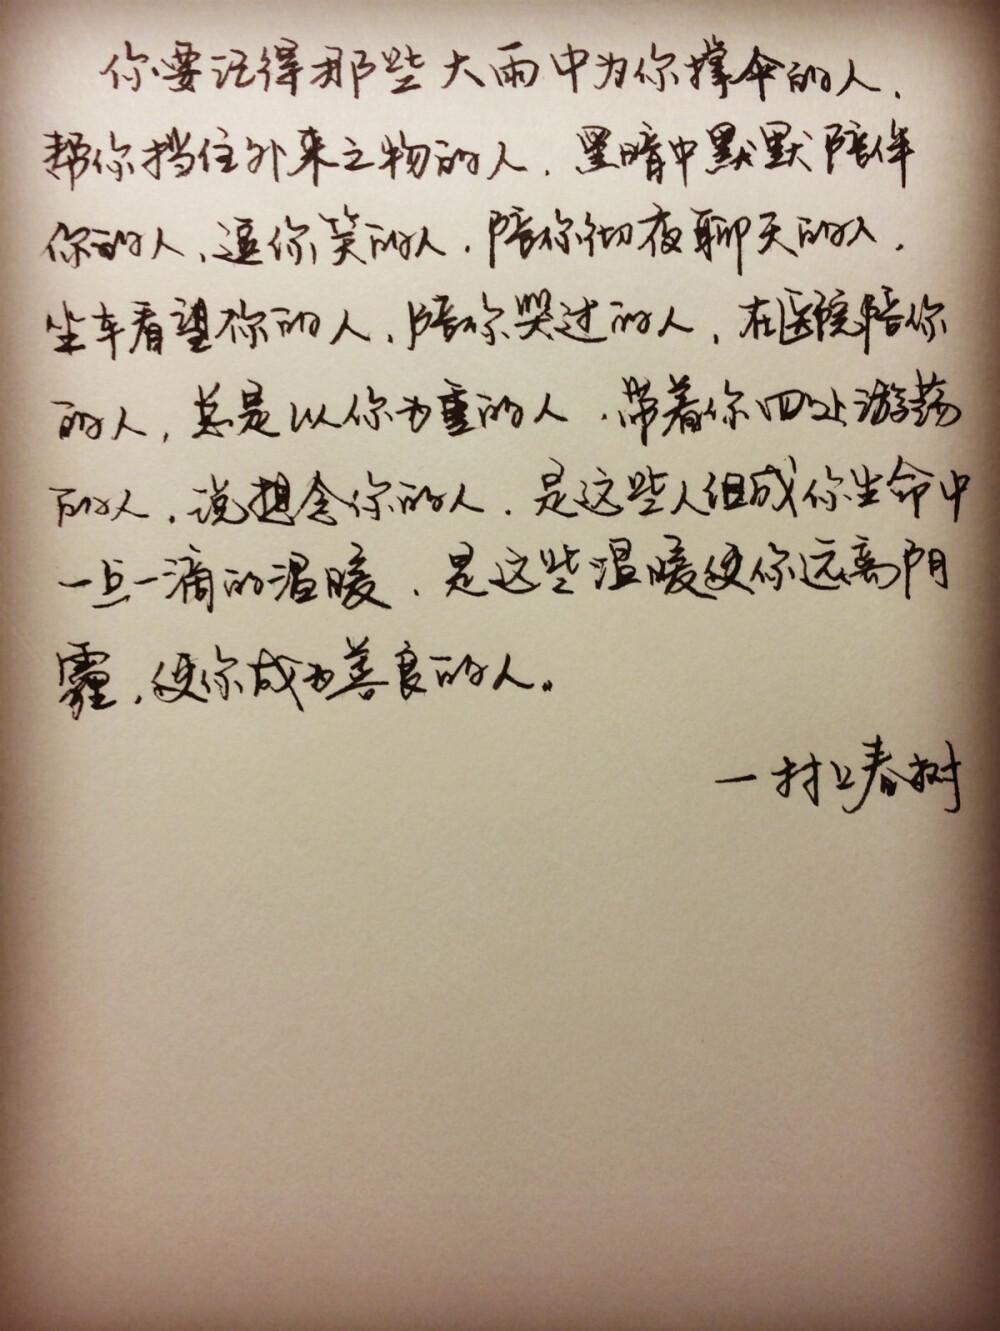 你要记得那些大雨中为你撑伞的人、
帮你挡住外来之物的人、黑暗中默默陪伴
你的人、逗你笑的人、陪你彻夜聊天的人、
坐车看望你的人、陪你哭过的人、在医院陪你
的人、总是以你为重的人、带着你四处游荡
的人、说想念你的人、是这些人组成你生命中
一点一滴的温暖、是这些温暖使你远离阴
霾、使你成为善良的人。
一村上春树